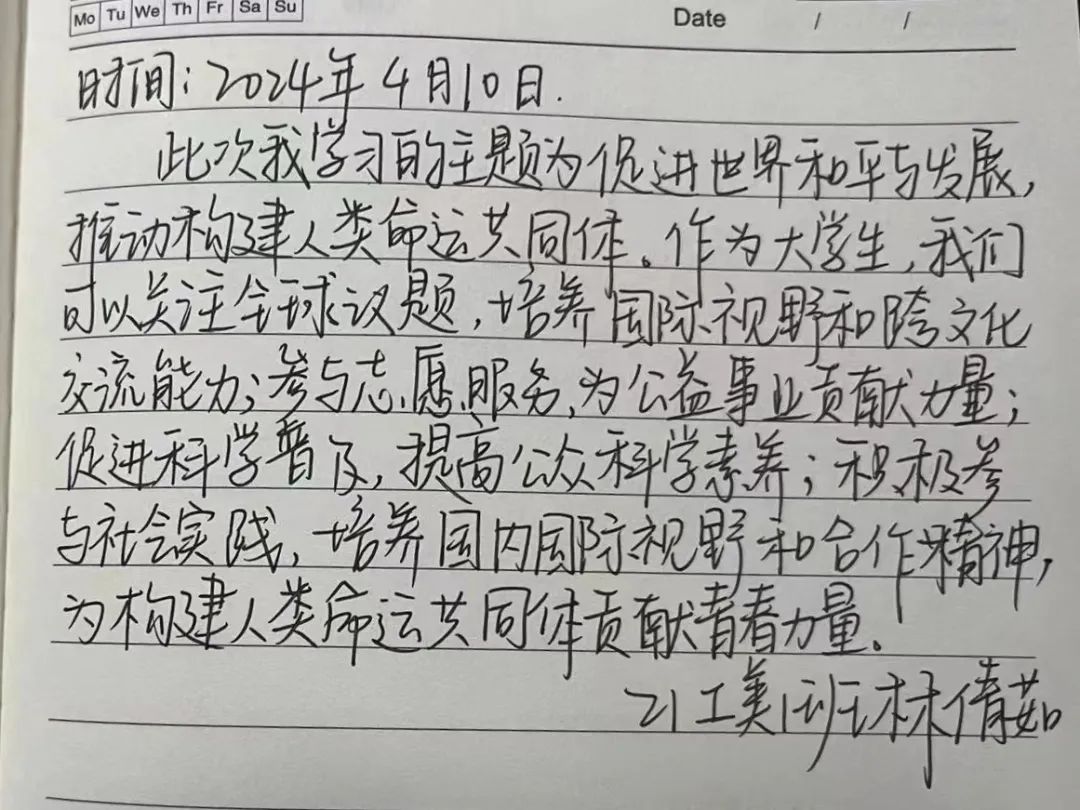 Mo Tu We Th Fr Sa Su
Date / /
时间：2024年4月10日.
此次我学习的主题为促进世界和平与发展，
推动构建人类命运共同体。作为大学生，我们
可以关注全球议题，培养国际视野和跨文化
交流能力；参与志愿服务，为公益事业贡献力量；
促进科学普及，提高公众科学素养；积极参
与社会实践，培养国内国际视野和合作精神，
为构建人类命运共同体贡献青春力量。
21工美1班林倩茹